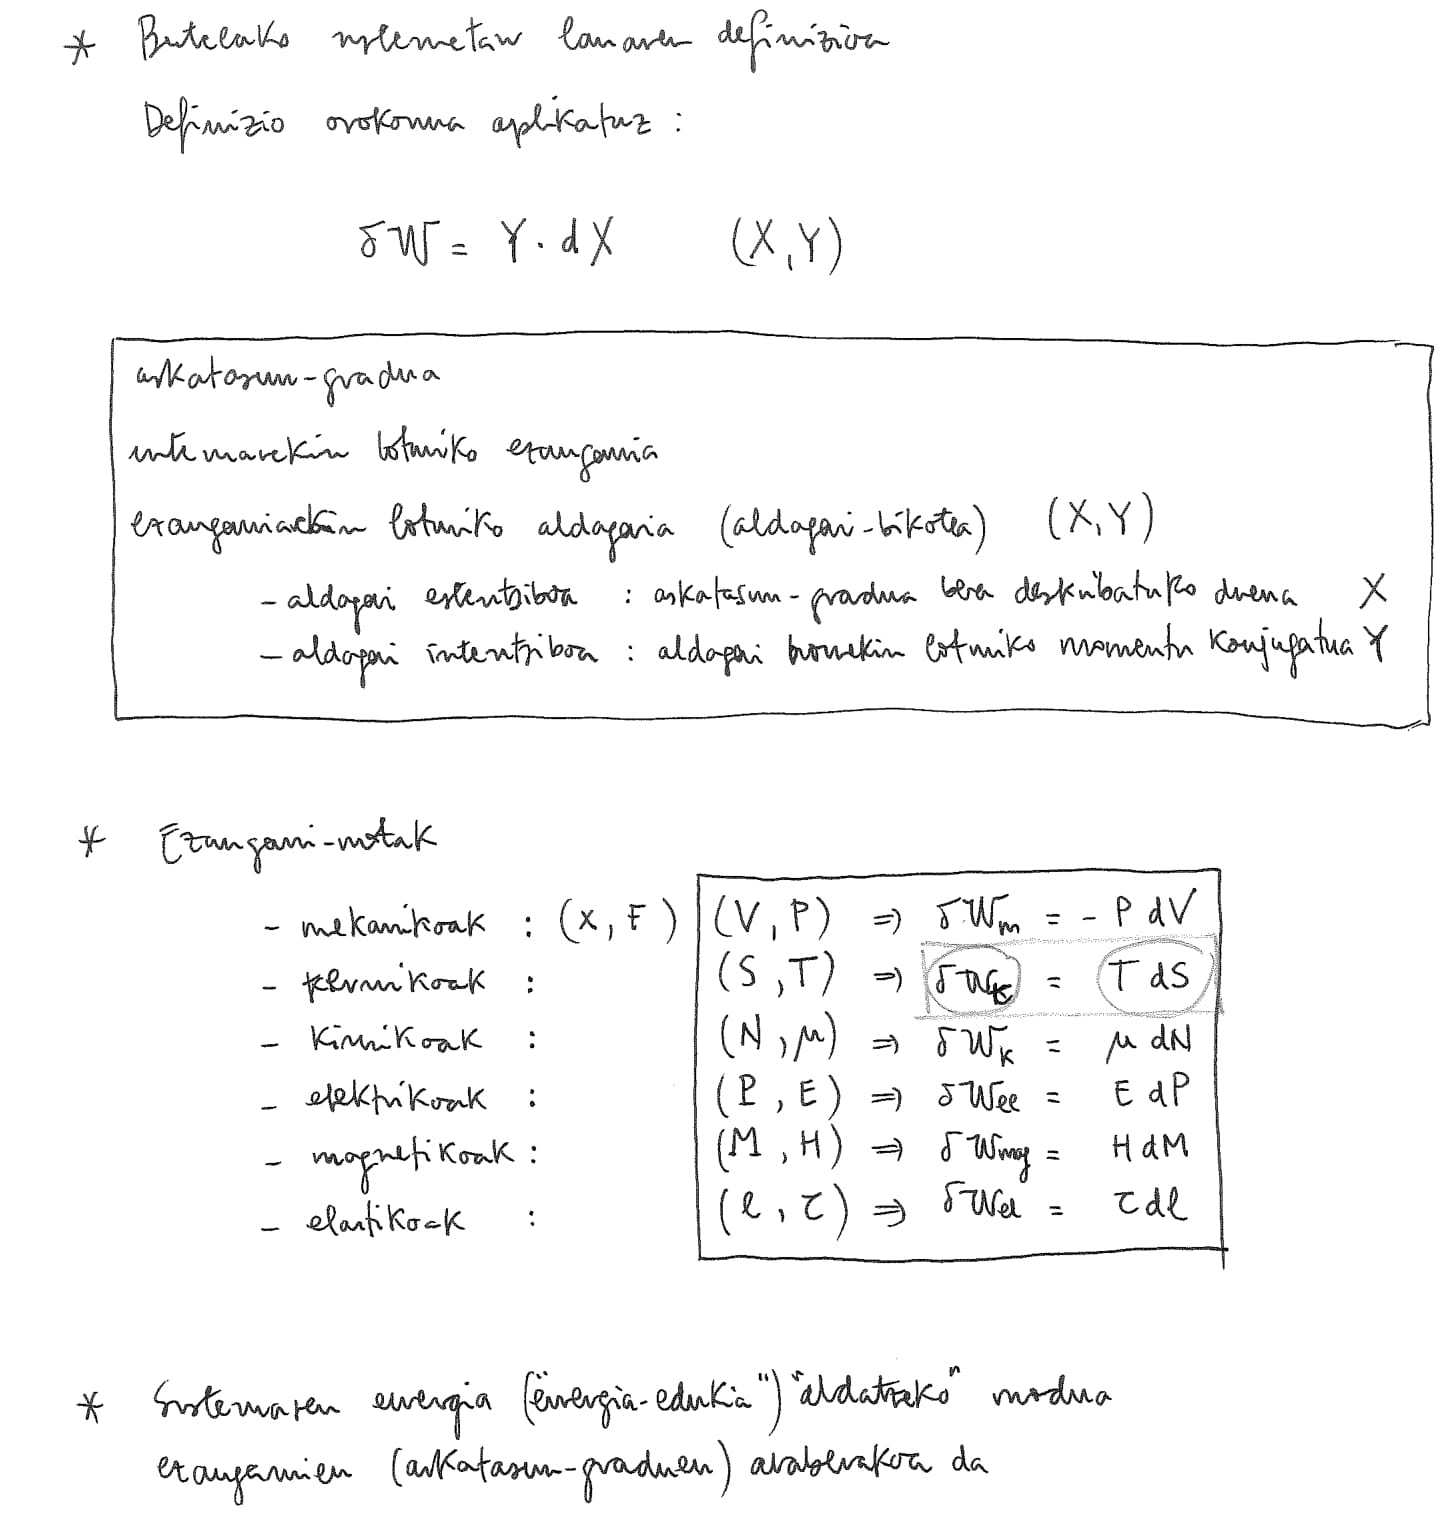 * Bestelako sistemetan lanaren definizioa
Definizio orokorra aplikatuz :
δW = Y · dX (X, Y)
askatasun-gradua
sistemarekin loturiko ezaugarria
ezaugarriarekin loturiko aldagaia (aldagai-bikotea) (X, Y)
- aldagai estentsiboa : askatasun-gradua bera deskribatuko duena X
- aldagai intentsiboa : aldagai honekin loturiko momentu konjugatua Y
* Ezaugarri-motak
- mekanikoak : (x, F) (V, P) ⇒ δWm = - P dV
- termikoak : (S, T) ⇒ δWt = T dS
- kimikoak : (N, μ) ⇒ δWk = μ dN
- elektrikoak : (P, E) ⇒ δWee = E dP
- magnetikoak : (M, H) ⇒ δWmg = H dM
- elastikoak : (l, τ) ⇒ δWel = τ dl
* Sistemaren energia ("energia-edukia") "aldatzeko" modua
ezaugarrien (askatasun-graduen) araberakoa da